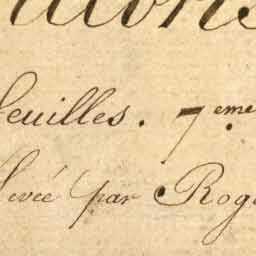 feuilles. 7eme
levée par Rog